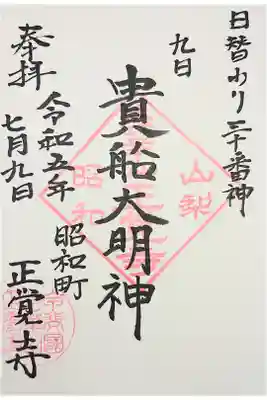 日替わり三十番神
九日
貴船大明神
奉拝
令和五年
七月九日
昭和町
正覚寺
山梨
昭和